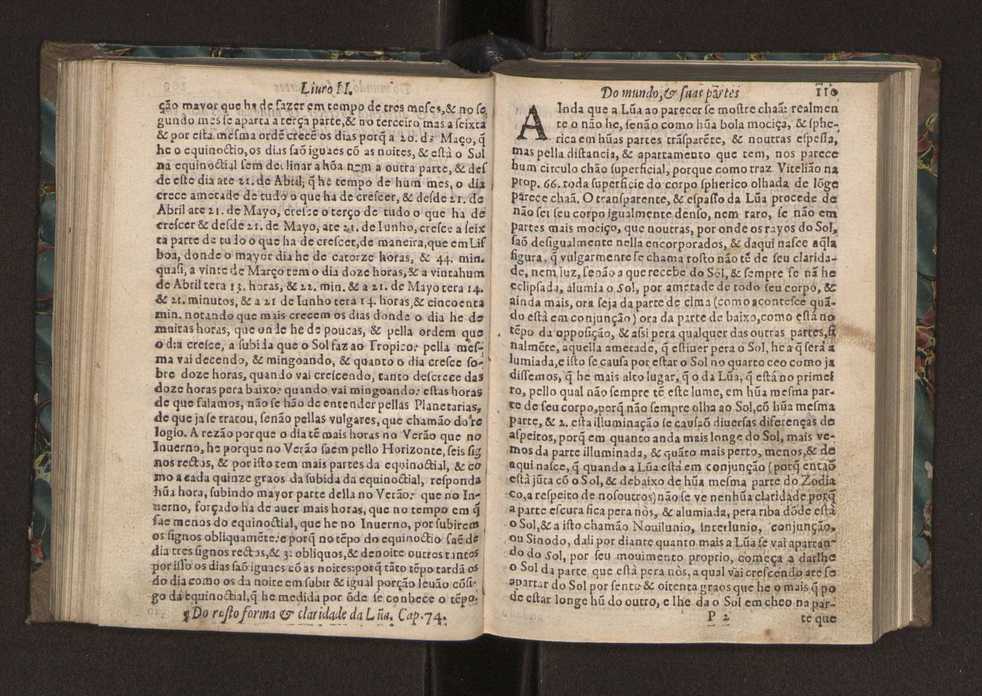 Liuro II.
ção mayor que ha de fazer em tempo de tres meses, & no se
gundo mes se aparta a terça parte, & no terceiro mas a seixta
& por esta mesma ordẽ crecẽ os dias porq̃ a 20. de Março, q̃
he o equinoctio, os dias saõ iguaes cõ as noites, & està o Sol
na equinoctial sem declinar a hũa nem a outra parte, & des
de este dia ate 21. de Abril, q̃ he tempo de hum mes, o dia
crece ametade de tudo o que ha de crescer, & desde 21. de
Abril ate 21. de Mayo, cresce o terço de tudo o que ha de
crescer & desde 21. de Mayo, ate 21. de Iunho, cresce a seix
ta parte de tudo o que ha de crescer, de maneira, que em Lis
boa, donde o mayor dia he de catorze horas, & 44. min.
quasi, a vinte de Março tem o dia doze horas, & a vintahum
de Abril tera 13. horas, & 22. min. & a 21. de Mayo tera 14.
& 21. minutos, & a 21 de Iunho tera 14. horas, & cincoenta
min. notando que mais crecem os dias donde o dia he de
muitas horas, que onde he de poucas, & pella ordem que
o dia cresce, a subida que o Sol faz ao Tropico: pella mes-
ma vai decendo, & mingoando, & quanto o dia cresce so-
bre doze horas, quando vai crescendo, tanto descrece das
doze horas pera baixo: quando vai mingoando: estas horas
de que falamos, não se hão de entender pellas Planetarias,
de que ja se tratou, senão pellas vulgares, que chamão do re
logio. A rezão porque o dia tẽ mais horas no Verão que no
Inuerno, he porque no Verão saem pello Horizonte, seis sig
nos rectos, & por isto tem mais partes da equinoctial, & co
mo a cada quinze graos da subida da equinoctial, responda
hũa hora, subindo mayor parte della no Verão: que no In-
uerno, forçado ha de auer mais horas, que no tempo em q̃
sae menos do equinoctial, que he no Inuerno, por subirem
os signos obliquamẽte: e porq̃ no tẽpo do equinoctio saẽ de
dia tres signos rectos, & 3: obliquos, & de noite outros tantos
por isso os dias saõ iguaes cõ as noites: porq̃ tãto tẽpo tardã os
do dia como os da noite em subir & igual porção leuão cõsi-
go da equinoctial, q̃ he medida por õde se conhece o tẽpo:
¶ Do rosto forma & claridade da Lũa. Cap. 74.
Do mundo, & suas partes 110
AInda que a Lũa ao parecer se mostre chaã: realmen
te o não he, senão como hũa bola mociça, & sphe-
rica em hũas partes trãsparẽte, & noutras espessa,
mas pella distancia, & apartamento que tem, nos parece
hum circulo chão superficial, porque como traz Vitelião na
prop. 66. toda superficie do corpo spherico olhada de lõge
parece chaã. O transparente, & espasso da Lũa procede de
não ser seu corpo igualmente denso, nem raro, se não em
partes mais mociço, que noutras, por onde os rayos do Sol,
saõ desigualmente nella encorporados, & daqui nasce aq̃la
figura, q̃ vulgarmente se chama rosto não tẽ de seu clarida-
de, nem luz, senão a que recebe do Sol, & sempre se nã he
eclipsada, alumia o Sol, por ametade de todo seu corpo, &
ainda mais, ora seja da parte de cima (como acontesce quã-
do està em conjunção) ora da parte de baixo, como està no
tẽpo da opposição, & assi pera qualquer das outras partes, fi
nalmẽte, aquella ametade, q̃ estiuer pera o Sol, he a q̃ serà a
lumiada, e isto se causa por estar o Sol no quarto ceo como ja
dissemos, q̃ he mais alto lugar, q̃ o da Lũa, q̃ està no primei
ro, pello qual não sempre tẽ este lume, em hũa mesma par-
te de seu corpo, porq̃ não sempre olha ao Sol, cõ hũa mesma
parte, & 2. esta illuminação se causaõ diuersas diferenças de
aspeitos, porq̃ em quanto anda mais longe do Sol, mais ve-
mos da parte illuminada, & quãto mais perto, menos, & de
aqui nasce, q̃ quando a Lũa està em conjunção (porq̃ então
està jũta cõ o Sol, & debaixo de hũa mesma parte do Zodia
co, a respeito de nosoutros) não se ve nenhũa claridade porq̃
a parte escura fica pera nòs, & alumiada, pera riba dõde està
o Sol, & a isto chamão Nouilunio, interlunio, conjunção,
ou Sinodo, dali por diante quanto mais a Lũa se vai apartan-
do do Sol, por seu mouimento proprio, começa a darlhe
o Sol da parte que està pera nòs, a qual vai crescendo ate se
apartar do Sol por sento & oitenta graos que he o mais q̃ po
de estar longe hũ do outro, e lhe da o Sol em cheo na par-
P 2 te que